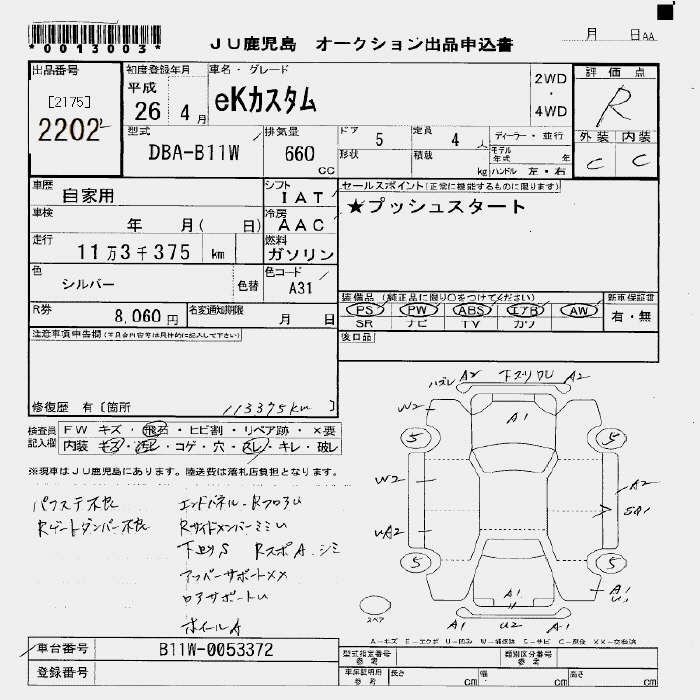 *0013003*
JU鹿児島 オークション出品申込書
月 日AA
出品番号
[2175]
2202
初度登録年月
平成
26 4月
車名・グレード
eKカスタム
2WD
・
4WD
評価点
R
外装 内装
C C
型式
DBA-B11W
排気量
660
CC
ドア 5
定員 4 人
ディーラー・並行
形状
積載 kg
モデル年式 年
ハンドル 左・右
車歴
自家用
シフト
IAT
セールスポイント(正常に機能するものに限ります)
★プッシュスタート
車検
年 月( 日)
冷房
AAC
走行
11万3千375 km
燃料
ガソリン
色
シルバー
色替
色コード
A31
R券
8,060円
名変通知期限
月 日
装備品(純正品に限り○をつけてください)
PS PW ABS エアB AW
SR ナビ TV カワ
新車保証書
有・無
後日品
注意事項申告欄(不具合内容等は具体的に記入して下さい)
修復歴 有〔箇所 113375km〕
検査員記入欄
FW キズ・飛石・ヒビ割・リペア跡・X要
内装 キズ・汚ヒ・コゲ・穴・スレ・キレ・破レ
※現車はJU鹿児島にあります。陸送費は落札店負担となります。
エンドパネル・RフロアU
RサイドメンバーミミU
アッパーサポートXX
ロアサポートU
ホイールA
ハズレ A2 下スリワレ A2
W2 A1
5 5
W2 A2
UA2 SA1
5 5
A1 A1
U1
スペア
A1 U2 A1
A-キズ E-エクボ U-凹み W-補修跡 S-サビ C-腐食 XX-交換済
車台番号
B11W-0053372
登録番号
型式指定番号
参考
類別区分番号
参考
車庫証明用
参考
長さ cm
幅 cm
高さ cm